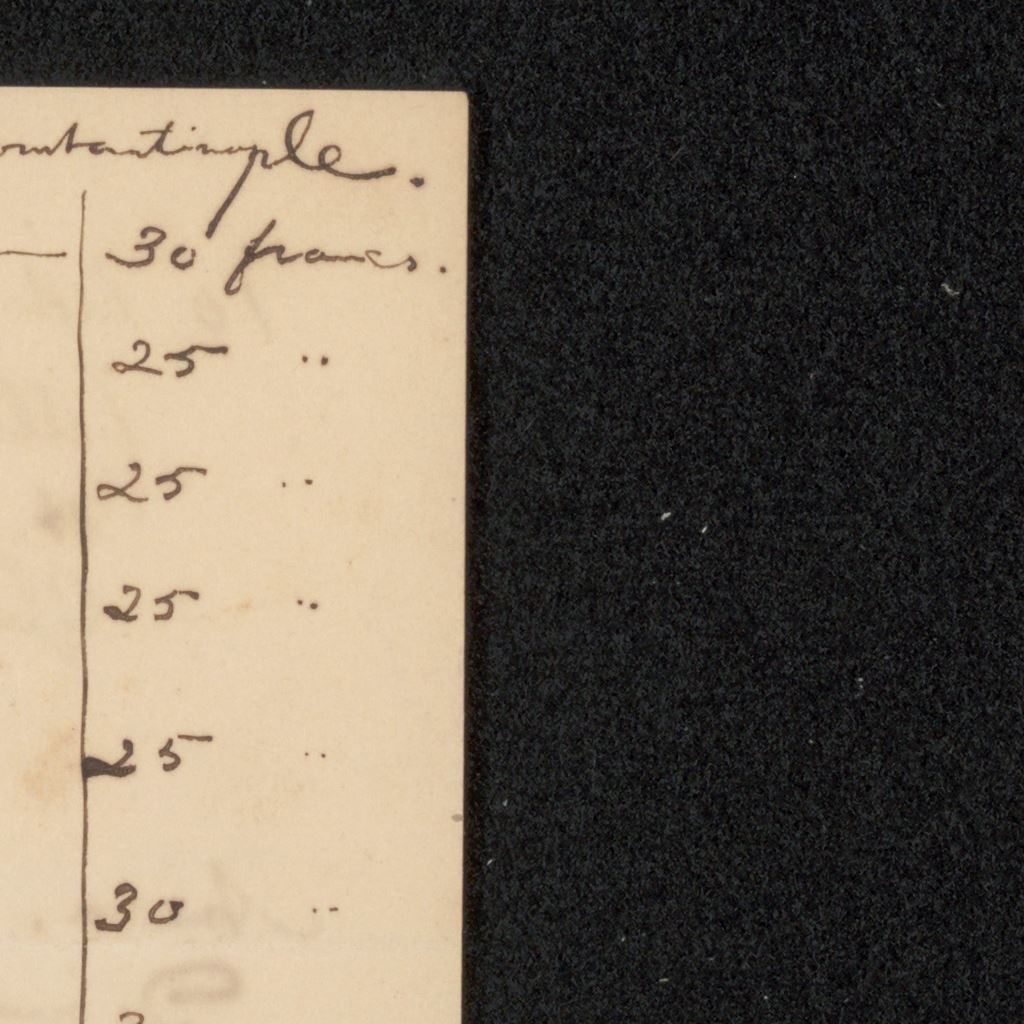 onstantinople.
30 francs.
25 ..
25 ..
25 ..
25 ..
30 ..